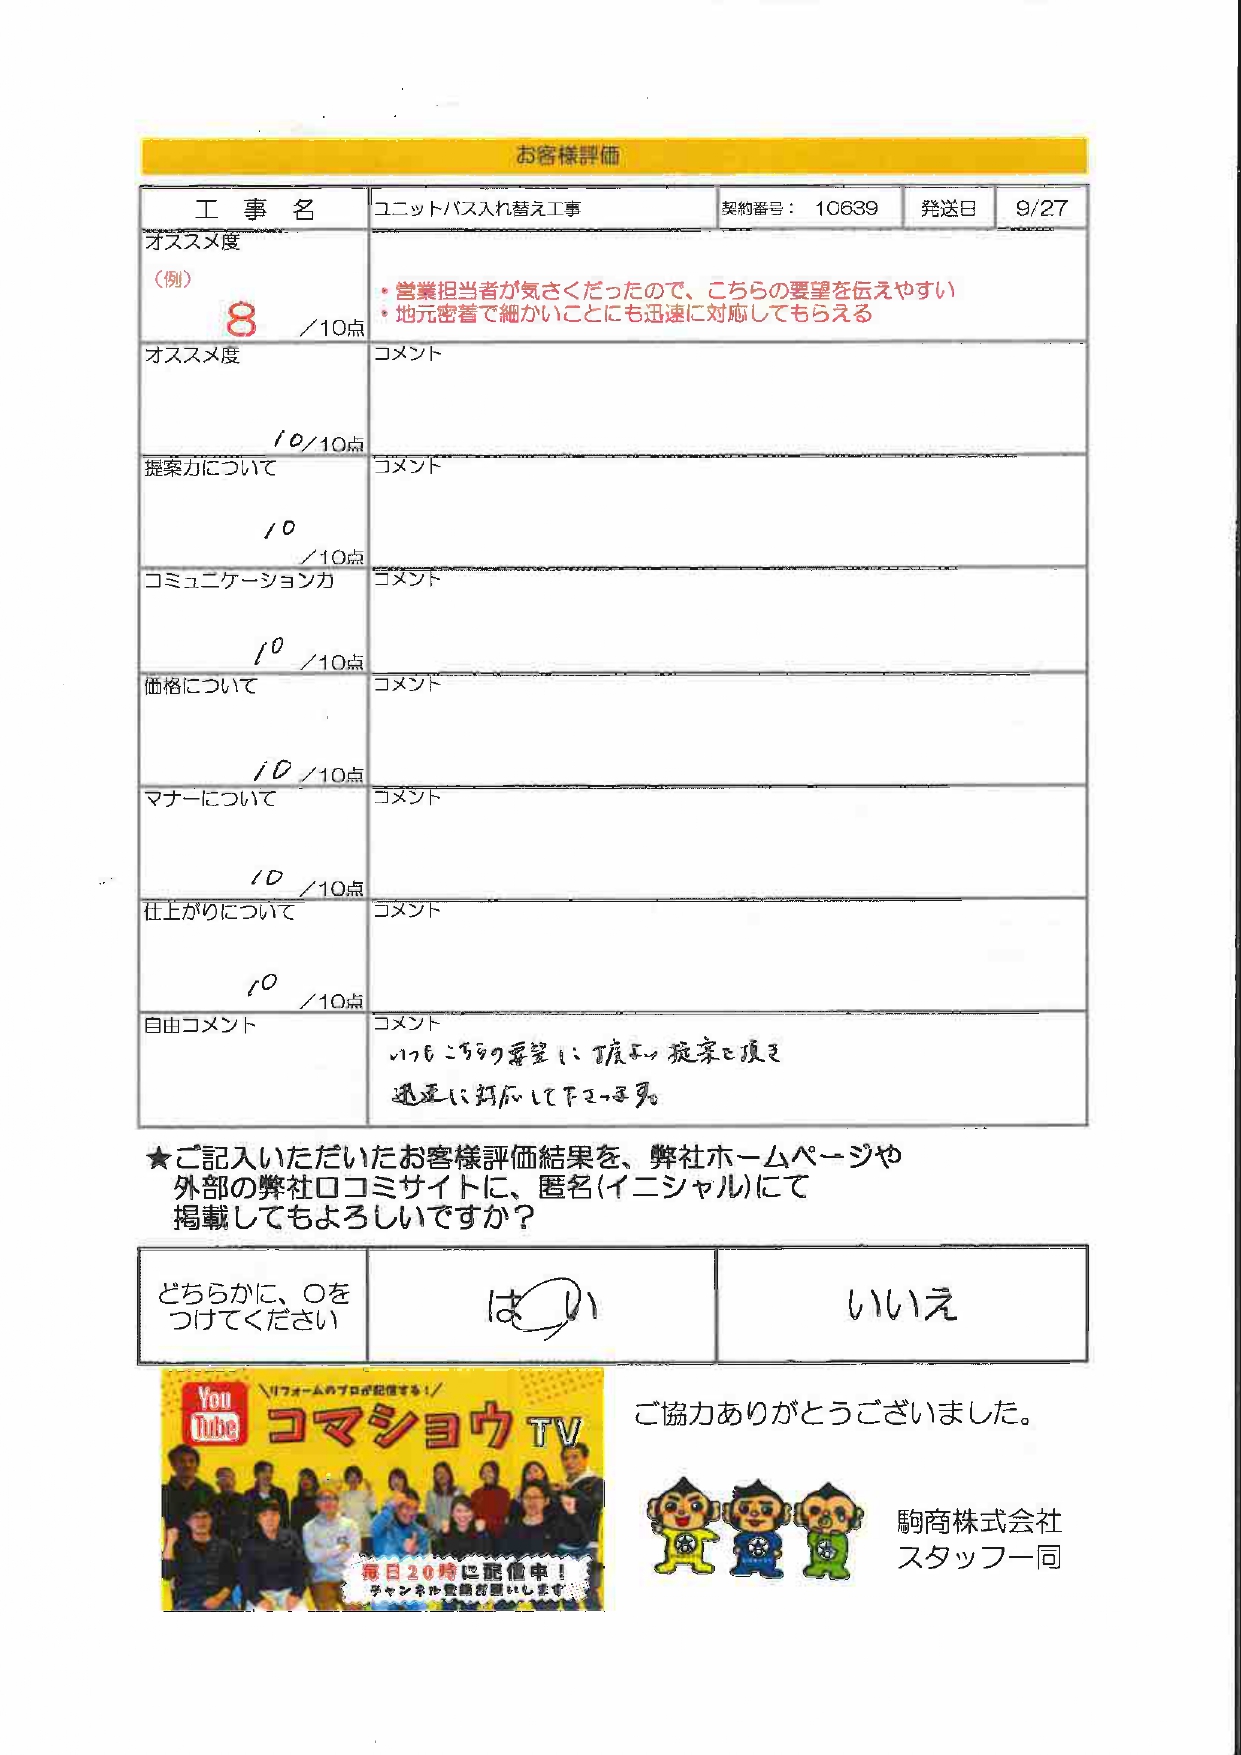 お客様評価
工事名 ユニットバス入れ替え工事 契約番号： 10639 発送日 9/27
オススメ度
（例）
・営業担当者が気さくだったので、こちらの要望を伝えやすい
・地元密着で細かいことにも迅速に対応してもらえる
8 ／10点
オススメ度 コメント
10/10点
提案力について コメント
10
／10点
コミュニケーション力 コメント
10 ／10点
価格について コメント
10 ／10点
マナーについて コメント
10 ／10点
仕上がりについて コメント
10
／10点
自由コメント コメント
いつもこちらの要望に丁度よい提案を頂き
迅速に対応して下さってます。
★ご記入いただいたお客様評価結果を、弊社ホームページや
外部の弊社口コミサイトに、匿名(イニシャル)にて
掲載してもよろしいですか？
どちらかに、〇を
つけてください
はい いいえ
You
Tube
＼リフォームのプロが配信する！／
コマショウTV
毎日20時に配信中！
チャンネル登録お願いします
ご協力ありがとうございました。
駒商株式会社
スタッフ一同